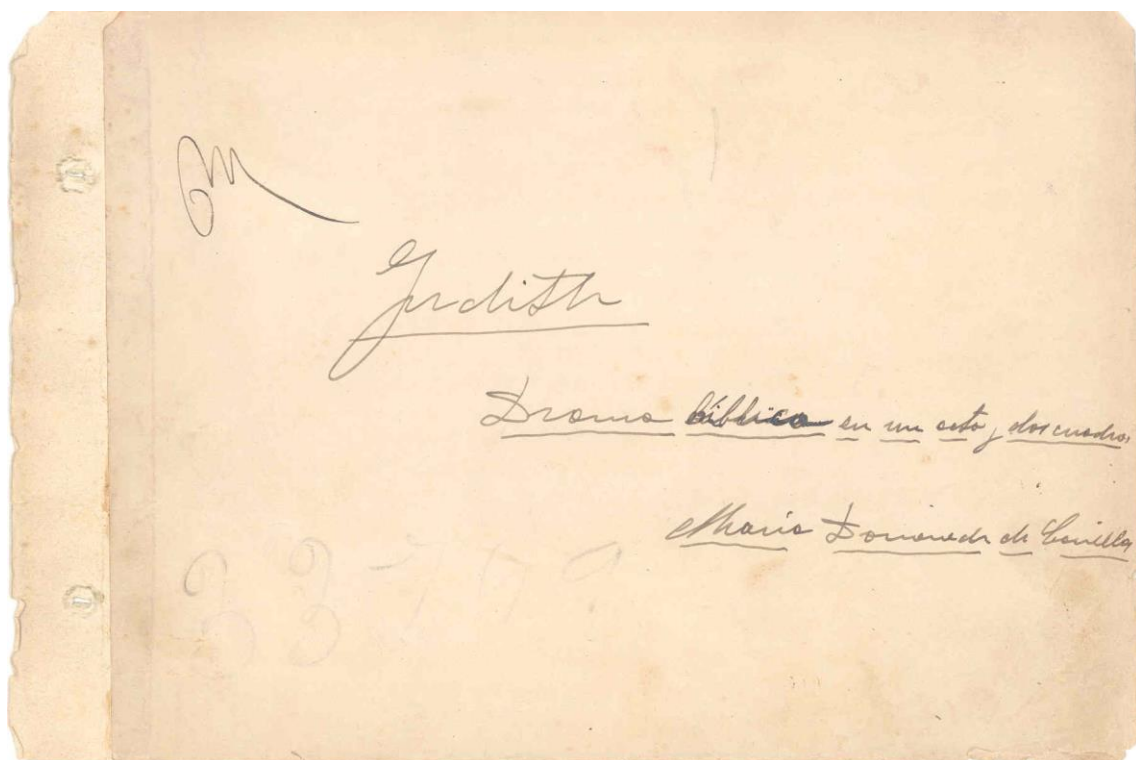 Judith
Drama bíblico en un acto y dos cuadros
Maria Domenech de Cañellas